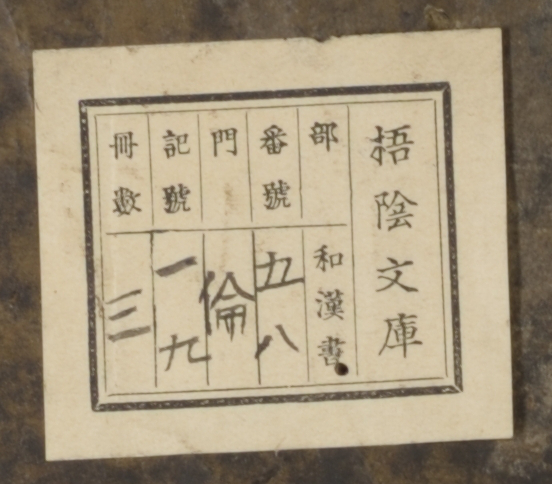 梧陰文庫
部 和漢書
番號 五八
門 倫
記號 一九
冊數 三